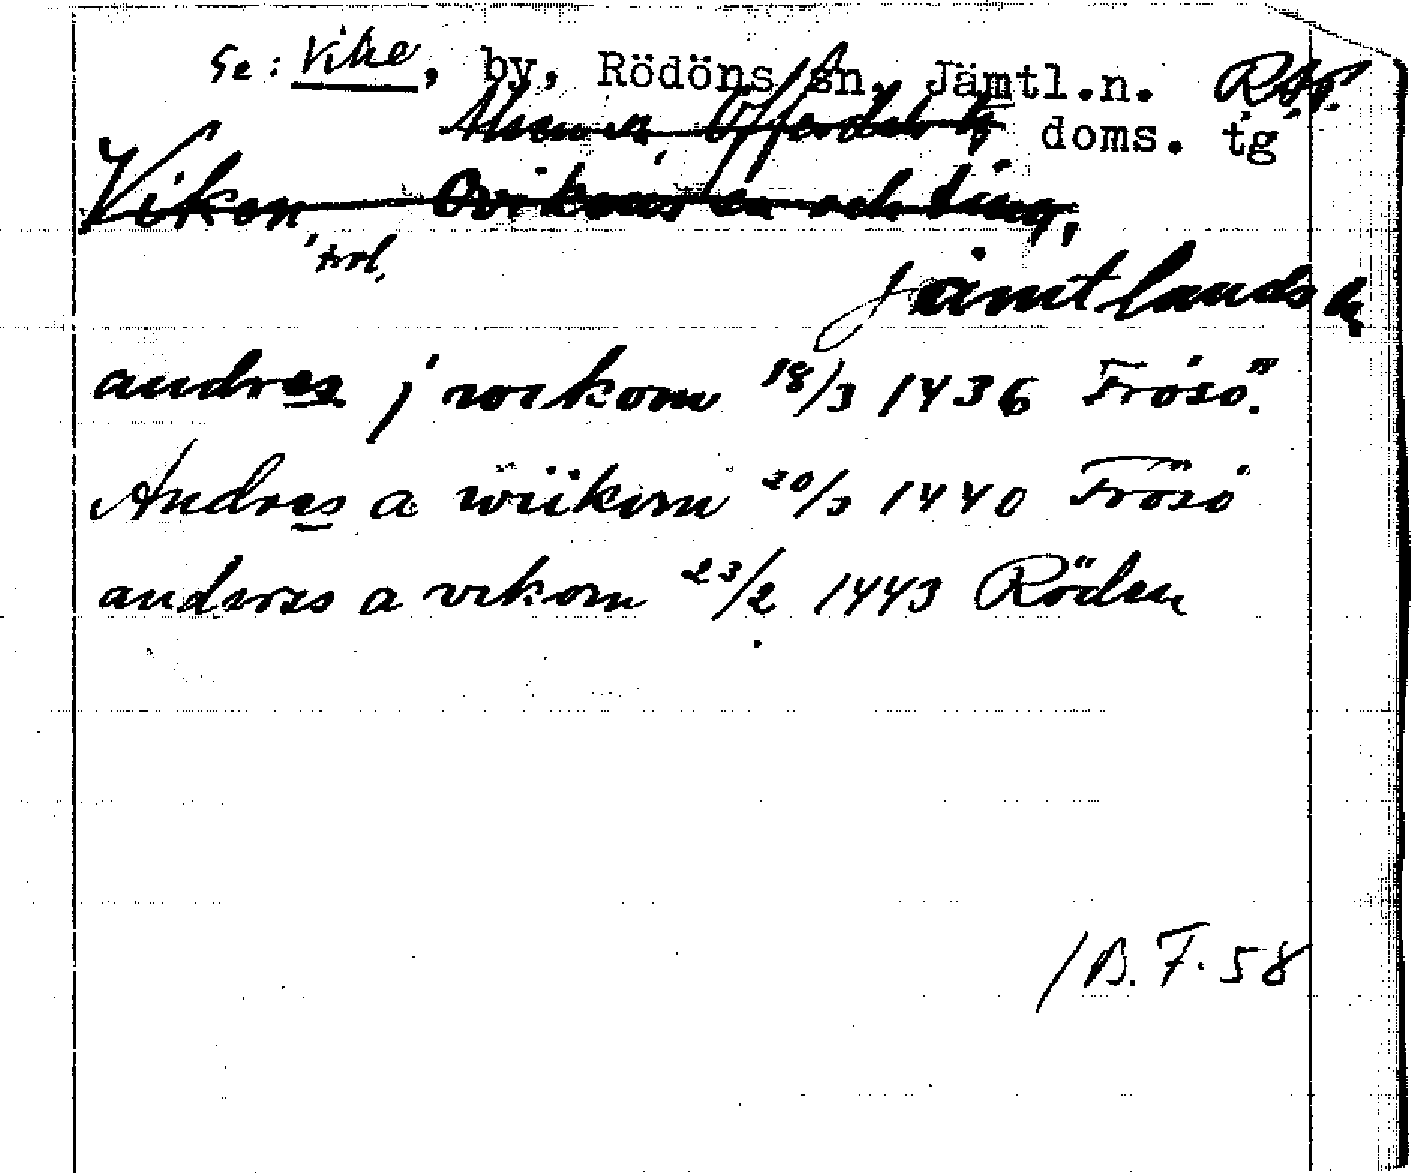 Se: Vike, by, Rödöns sn, Jämtl.n.
Alsens sn, Offerdals tg doms. tg
Viken, Ovikens sn och ting,
trol.
Jämtlands
andres j wikom 18/3 1436 Frösö.
Andres a wiikom 20/3 1440 Frösö
anderes a vikom 23/2 1443 Röden
/B.F. 58